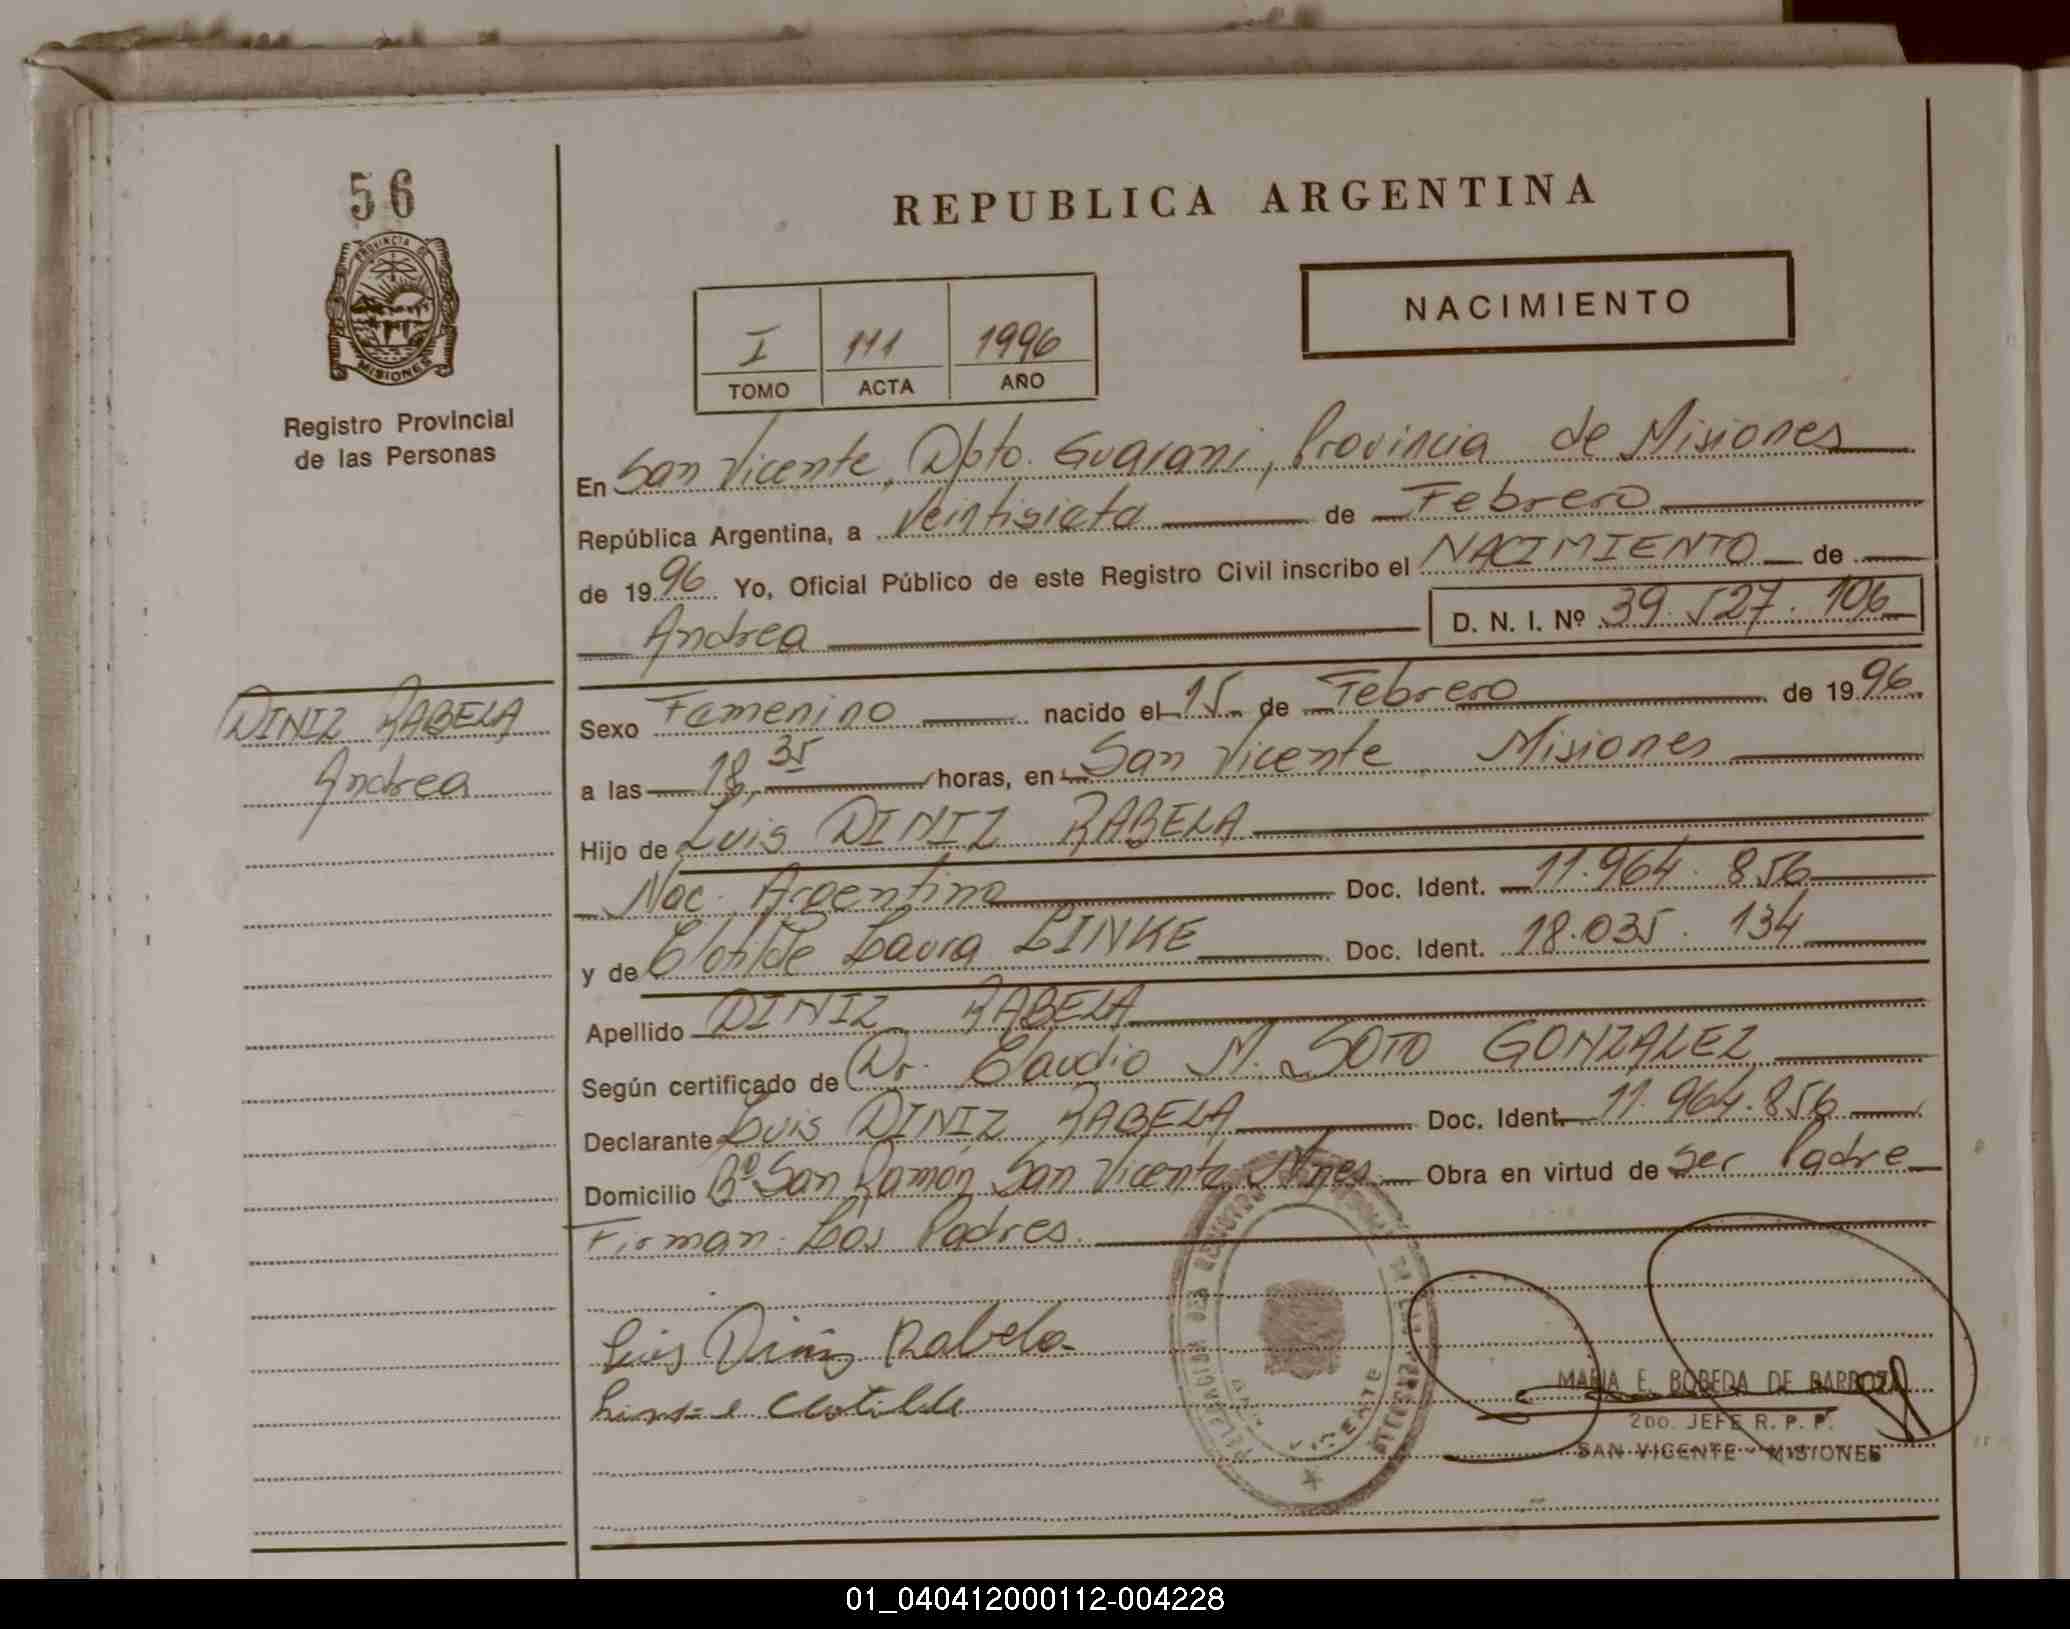 56
PROVINCIA DE
MISIONES
Registro Provincial
de las Personas
REPUBLICA ARGENTINA
NACIMIENTO
I 111 1996
TOMO ACTA AÑO
En San Vicente, Dpto. Guarani, Provincia de Misiones
República Argentina, a Veintisiete de Febrero
de 1996 Yo, Oficial Público de este Registro Civil inscribo el NACIMIENTO de
Andrea D. N. I. Nº 39.527.106
DINIZ RABELA
Andrea
Sexo Femenino nacido el 15 de Febrero de 1996
a las 18,35 horas, en San Vicente Misiones
Hijo de Luis DINIZ RABELA
Nac. Argentina Doc. Ident. 11.964.856
y de Clotilde Laura LINKE Doc. Ident. 18.035.134
Apellido DINIZ RABELA
Según certificado de Dr. Claudio M. SOTO GONZALEZ
Declarante Luis DINIZ RABELA Doc. Ident. 11.964.856
Domicilio Bº San Ramón San Vicente Mnes. Obra en virtud de Ser Padre
Firman: Los Padres.
Luis Diniz Rabela
Clotilde
VICENTE
MARIA E. BOBEDA DE BARBOZA
2DO. JEFE R. P. P.
SAN VICENTE - MISIONES
01_040412000112-004228